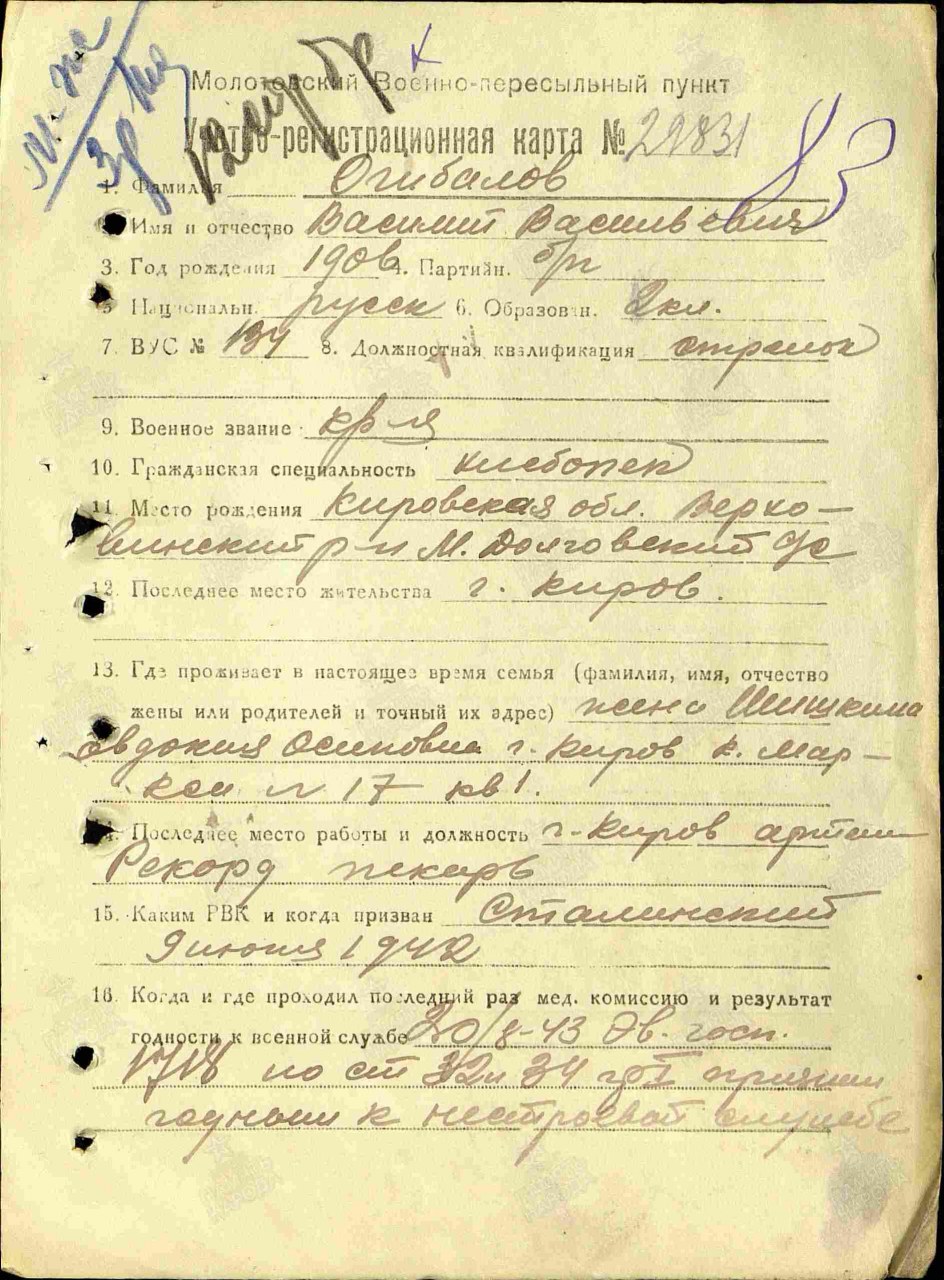 Молотовский Военно-пересыльный пункт
Учетно-регистрационная карта № 29831
83
1. Фамилия Огибалов
Имя и отчество Василий Васильевич
3. Год рождения 1906 4. Партийн. б/п
5 Национальн. русск 6. Образован. 2кл.
7. ВУС № 134 8. Должностная квалификация стрелок
9. Военное звание кр-ц
10. Гражданская специальность хлебопек
11. Место рождения Кировская обл. Верхо-
винский р-н М. Долговский с/с
12. Последнее место жительства г. Киров.
13. Где проживает в настоящее время семья (фамилия, имя, отчество
жены или родителей и точный их адрес) жена Шишкина
Евдокия Осиповна г. Киров К. Мар-
кса 17 кв 1.
14. Последнее место работы и должность г. Киров артель
Рекорд пекарь
15. Каким РВК и когда призван Сталинский
9 июня 1942
16. Когда и где проходил последний раз мед. комиссию и результат
годности к военной службе 30/8-43 Эв. госп.
1718 по ст 32 и 34 гр I признан
годным к нестроевой службе